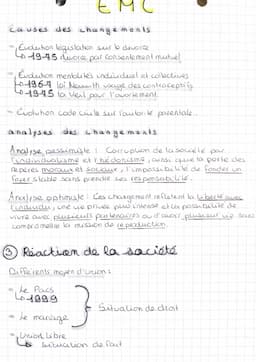 EMC
causes des changements
- Evolution législation sur le divorce
↳ 1975 divorce par consentement mutuel
- Evolution mentalités individuel et collectives
↳ 1967 loi Neuwirth usage des contraceptifs
↳ 1975 la Veil pour l'avortement.
- Evolution code civile sur l'autorité parentale.
analyses des changements
Analyse pessimiste : Corruption de la société par
l'individualisme et l'hédonisme, ainsi que la perte des
repères moraux et sociaux, l'impossibilité de fonder un
foyer stable sans prendre ses responsabilité.
Analyse optimiste : Ces changement reflètent la liberté avec
l'individu, une vie privée plus intense et la possibilité de
vivre avec plusieurs partenaires ou d'avoir plusieurs vie sans
compromettre la mission de reproduction.
③ Réaction de la société
Différents moyen d'union :
- Le Pacs
↳ 1999
- Le mariage
Situation de droit
- Union libre
↳ Situation de fait